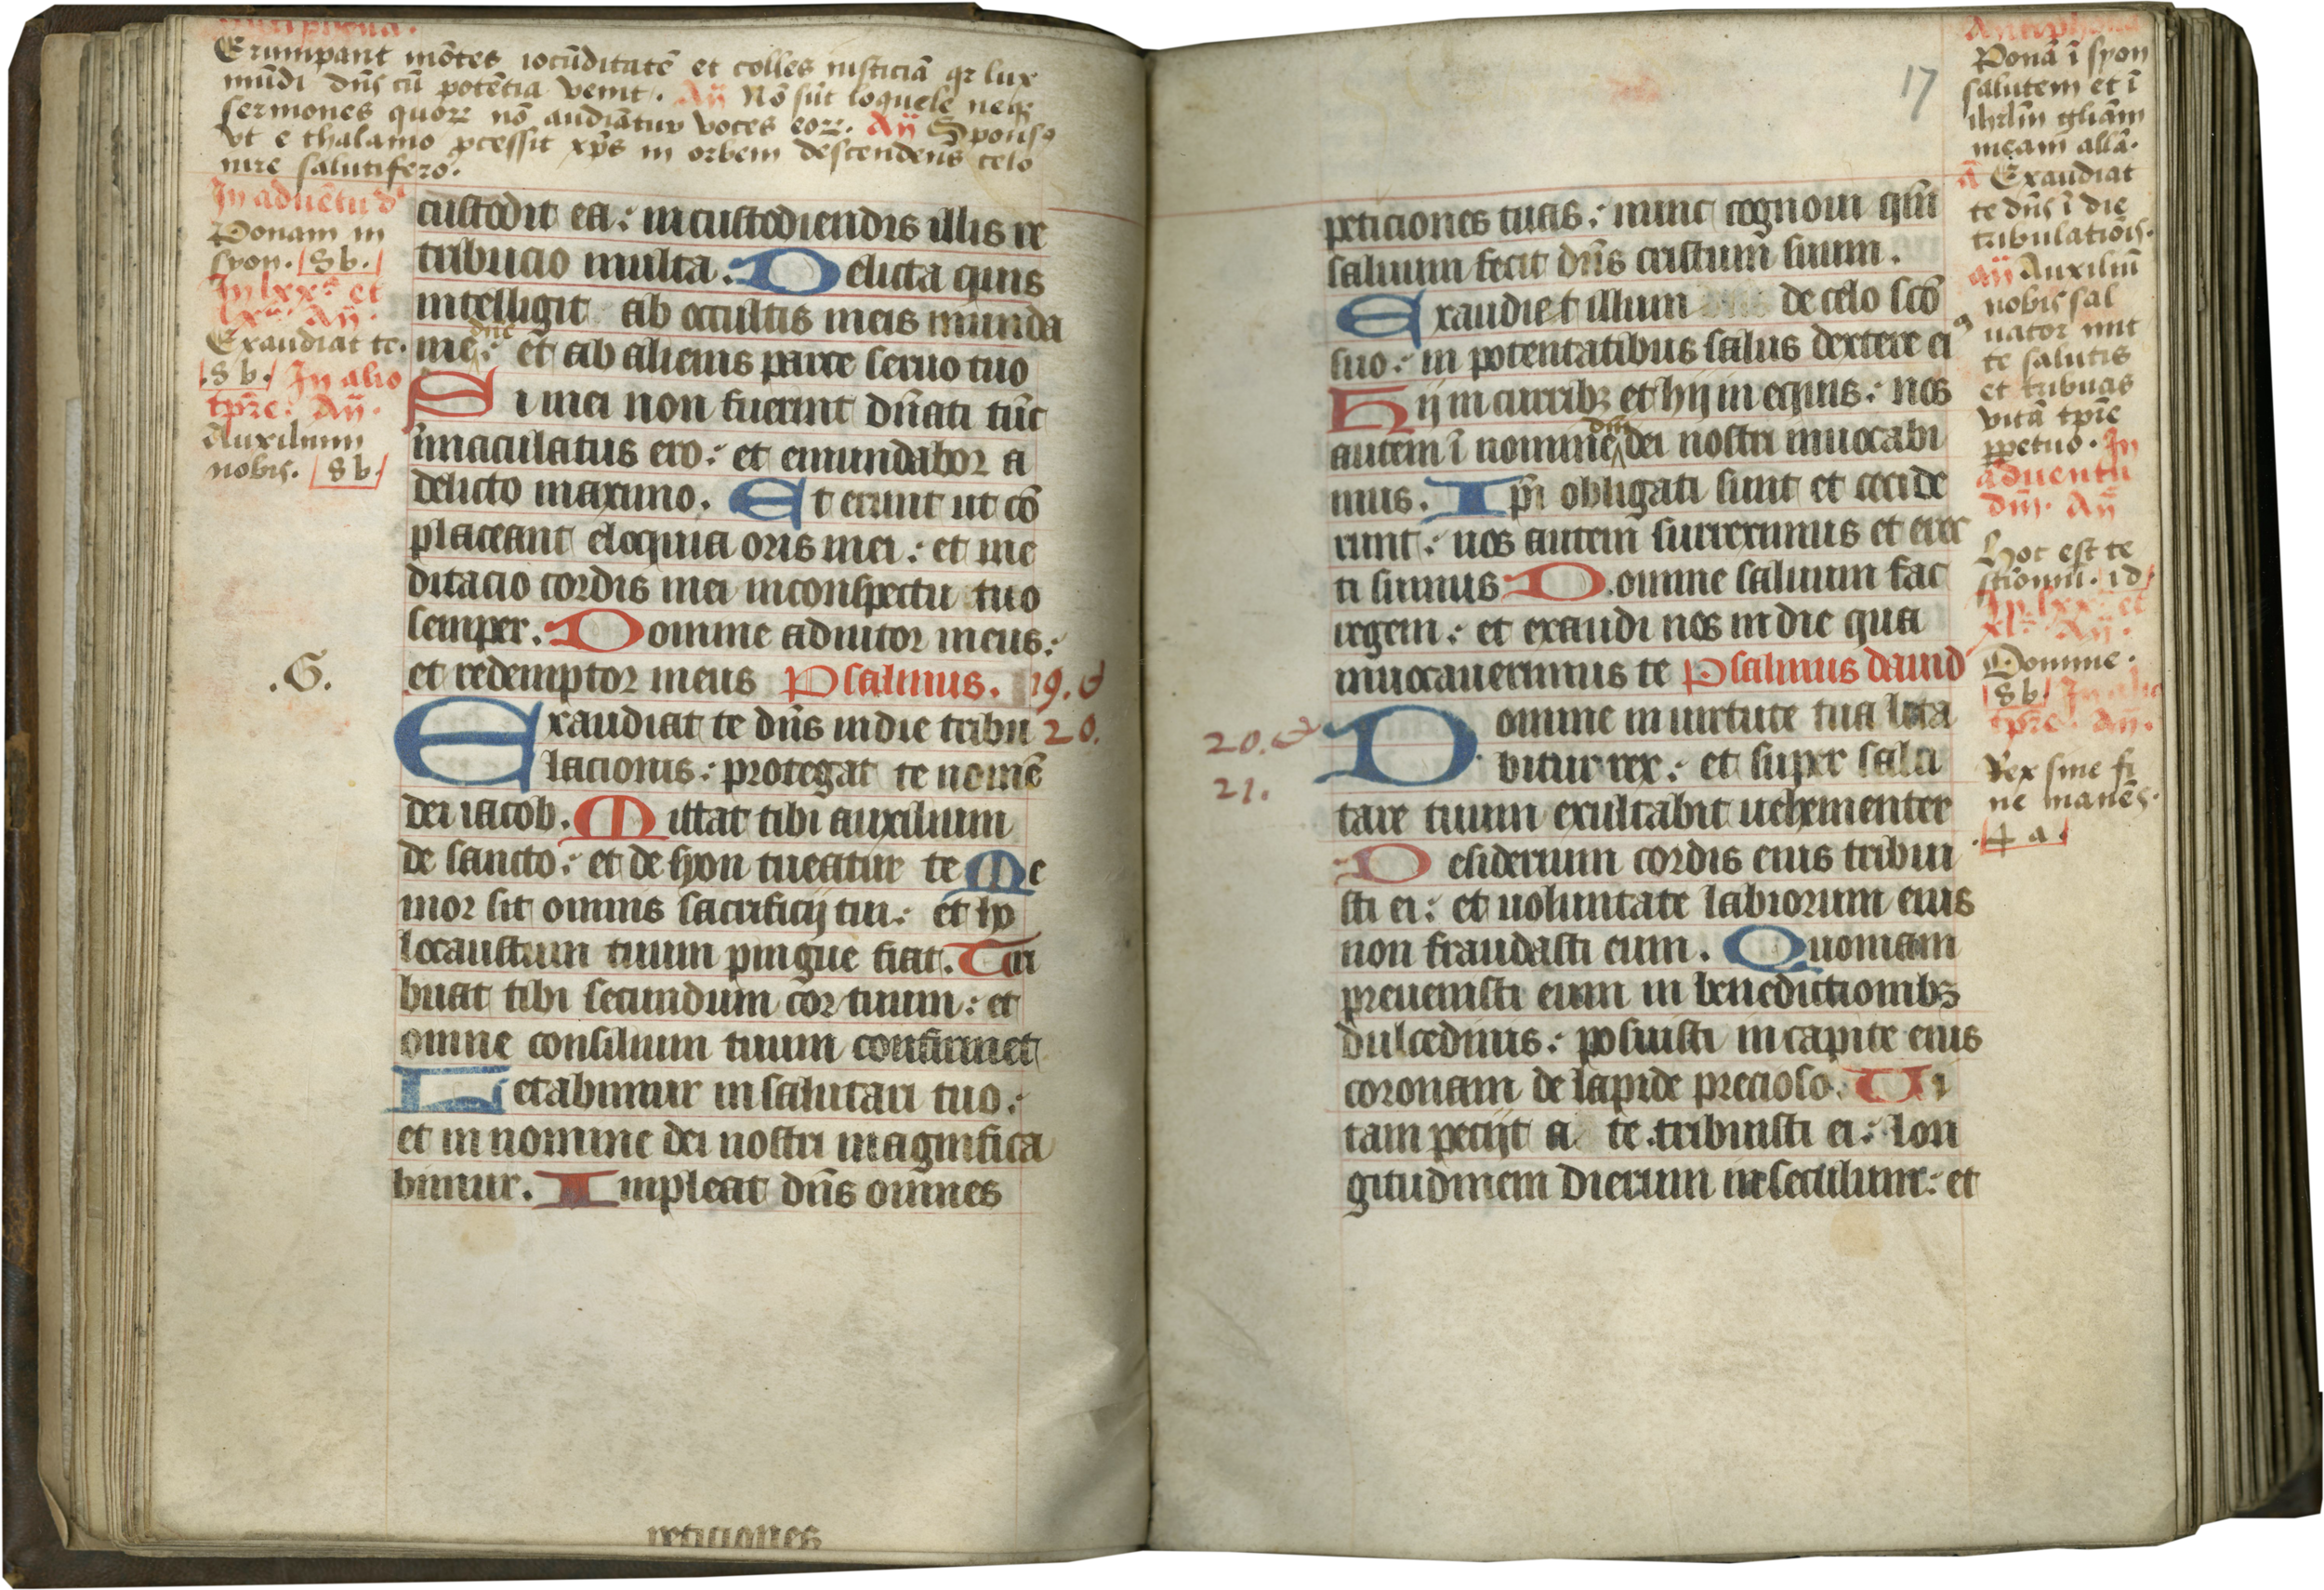 Antiphona.
Erumpant mōtes iocūditatē et colles iusticiā qr lux
mūdi dn̄s cū potētia venit. Añ Nō sūt loquele neqꝫ
sermones quoꝝ nō audiātur voces eoꝝ. Añ Sponsꝯ
vt e thalamo ꝓcessit xp̄s in orbem descendens celo
iure salutifero.
In aduētu d
Ponam in
syon. 8 b.
In lxxᵃ et
lxᵃ Añ.
Exaudiat te.
.8 b. In alio
tpr̄e. Añ.
Auxilium
nobis. 8 b.
custodit ea : in custodiendis illis re
tribucio multa. Delicta quis
intelligit ab occultis meis munda
me : dn̄e et ab alienis parce seruo tuo
Si mei non fuerint dn̄ati tūc
īmaculatus ero : et emundabor a
delicto maximo. Et erunt ut cō
placeant eloquia oris mei : et me
ditacio cordis mei in conspectu tuo
semper. Domine adiutor meus :
et redemptor meus Psalmus. 19. et
.G.
Exaudiat te dn̄s in die tribu 20.
lacionis : protegat te nomē
dei iacob. Mittat tibi auxilium
de sancto : et de syon tueatur te Me
mor sit omnis sacrificij tui : et ho
locaustum tuum pingue fiat. Tri
buat tibi secundum cor tuum : et
omne consilium tuum confirmet
Letabimur in salutari tuo :
et in nomine dei nostri magnifica
bimur. Impleat dn̄s omnes
peticiones
17
peticiones tuas : nunc cognoui qm̄
saluum fecit dn̄s cristum suum.
Exaudiet illum de celo scō
suo : in potentatibus salus dextere eiꝯ
Hij in curribꝫ et hij in equis : nos
autem ī nomine dn̄i dei nostri inuocabi
mus. Ip̄i obligati sunt et cecide
runt : nos autem surreximus et erec
ti sumus Domine saluum fac
regem : et exaudi nos in die qua
inuocauerimus te Psalmus dauid
20. et Domine in uirtute tua leta
21. bitur rex : et super salu
tare tuum exultabit uehementer
Desiderium cordis eius tribui
sti ei : et uoluntate labiorum eius
non fraudasti eum. Quoniam
preuenisti eum in benedictionibꝫ
dulcedinis : posuisti in capite eius
coronam de lapide precioso. Vi
tam pecijt a te tribuisti ei : lon
gitudinem dierum in seculum : et
Antiphona
Ponā ī syon
salutem et ī
ihrl̄m gl̄iam
meam allā.
ā Exaudiat
te dn̄s ī die
tribulatiois.
añ Auxiliū
nobis sal
uator mit
te salutis
et tribuas
vitā tpr̄e
ꝑpetuo. In
aduentu
dn̄i. Añ
Hoc est te
stīoniū. 1d
In lxxᵃ et
xlᵃ Añ.
Domine.
8 b. In alio
tpr̄e. Añ.
Rex sine fi
ne manēs.
4 a.